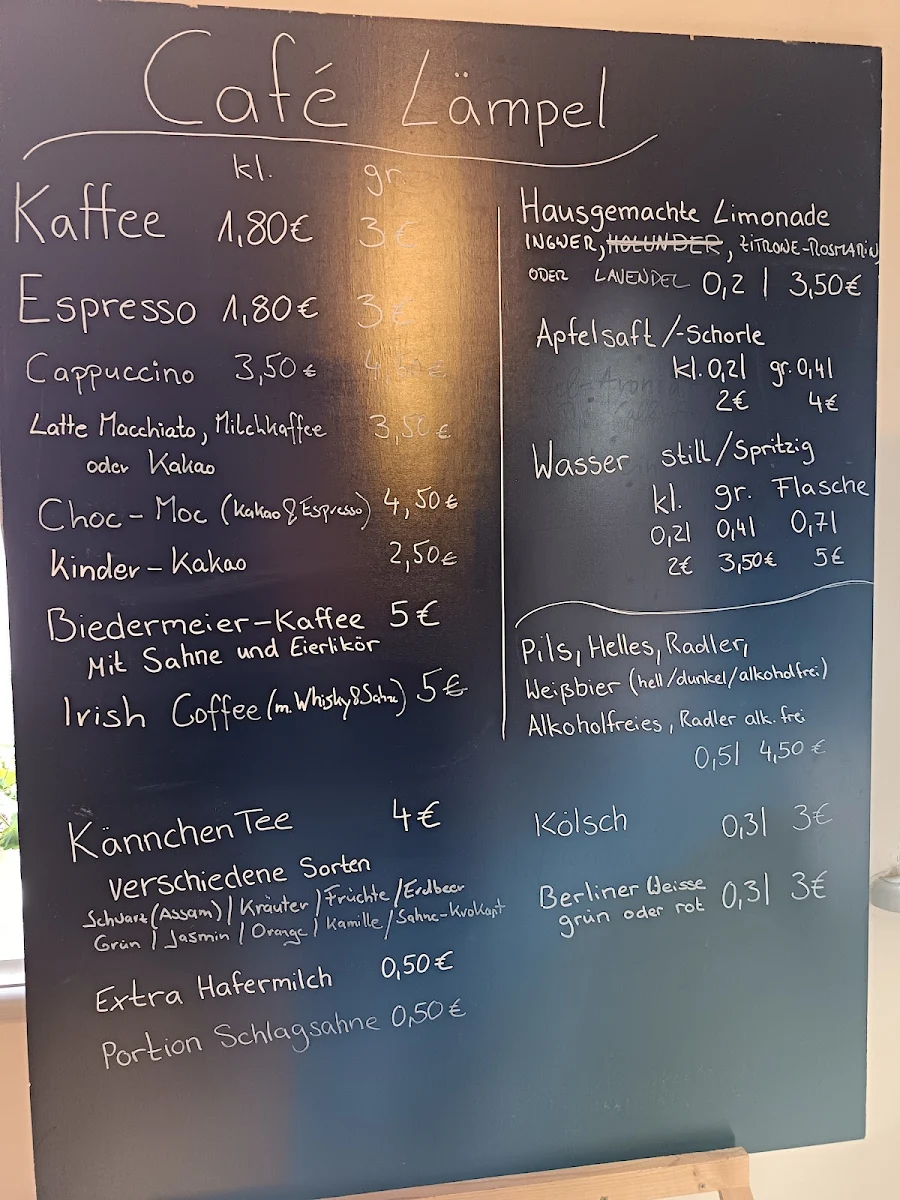 Café Lämpel
kl. gr.
Kaffee 1,80€ 3€
Espresso 1,80€ 3€
Cappuccino 3,50€
Latte Macchiato, Milchkaffee 3,50€
oder Kakao
Choc-Moc (Kakao & Espresso) 4,50€
Kinder-Kakao 2,50€
Biedermeier-Kaffee 5€
Mit Sahne und Eierlikör
Irish Coffee (m. Whisky & Sahne) 5€
Kännchen Tee 4€
verschiedene Sorten
Schwarz (Assam) / Kräuter / Früchte / Erdbeer
Grün / Jasmin / Orange / Kamille / Sahne-Krokant
Extra Hafermilch 0,50€
Portion Schlagsahne 0,50€
Hausgemachte Limonade
INGWER, HOLUNDER, ZITRONE-ROSMARIN
ODER LAVENDEL 0,2l 3,50€
Apfelsaft/-Schorle
kl. 0,2l gr. 0,4l
2€ 4€
Wasser still/Spritzig
kl. gr. Flasche
0,2l 0,4l 0,7l
2€ 3,50€ 5€
Pils, Helles, Radler,
Weißbier (hell/dunkel/alkoholfrei)
Alkoholfreies, Radler alk. frei
0,5l 4,50€
Kölsch 0,3l 3€
Berliner Weisse 0,3l 3€
grün oder rot